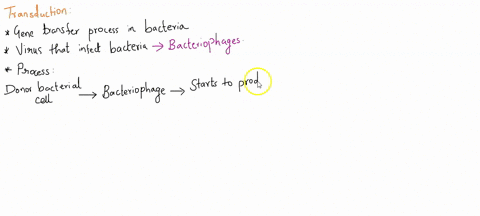 Transduction:
* Gene transfer process in bacteria
* Virus that infect bacteria → Bacteriophages.
* Process:
Donor bacterial cell → Bacteriophage → Starts to prod